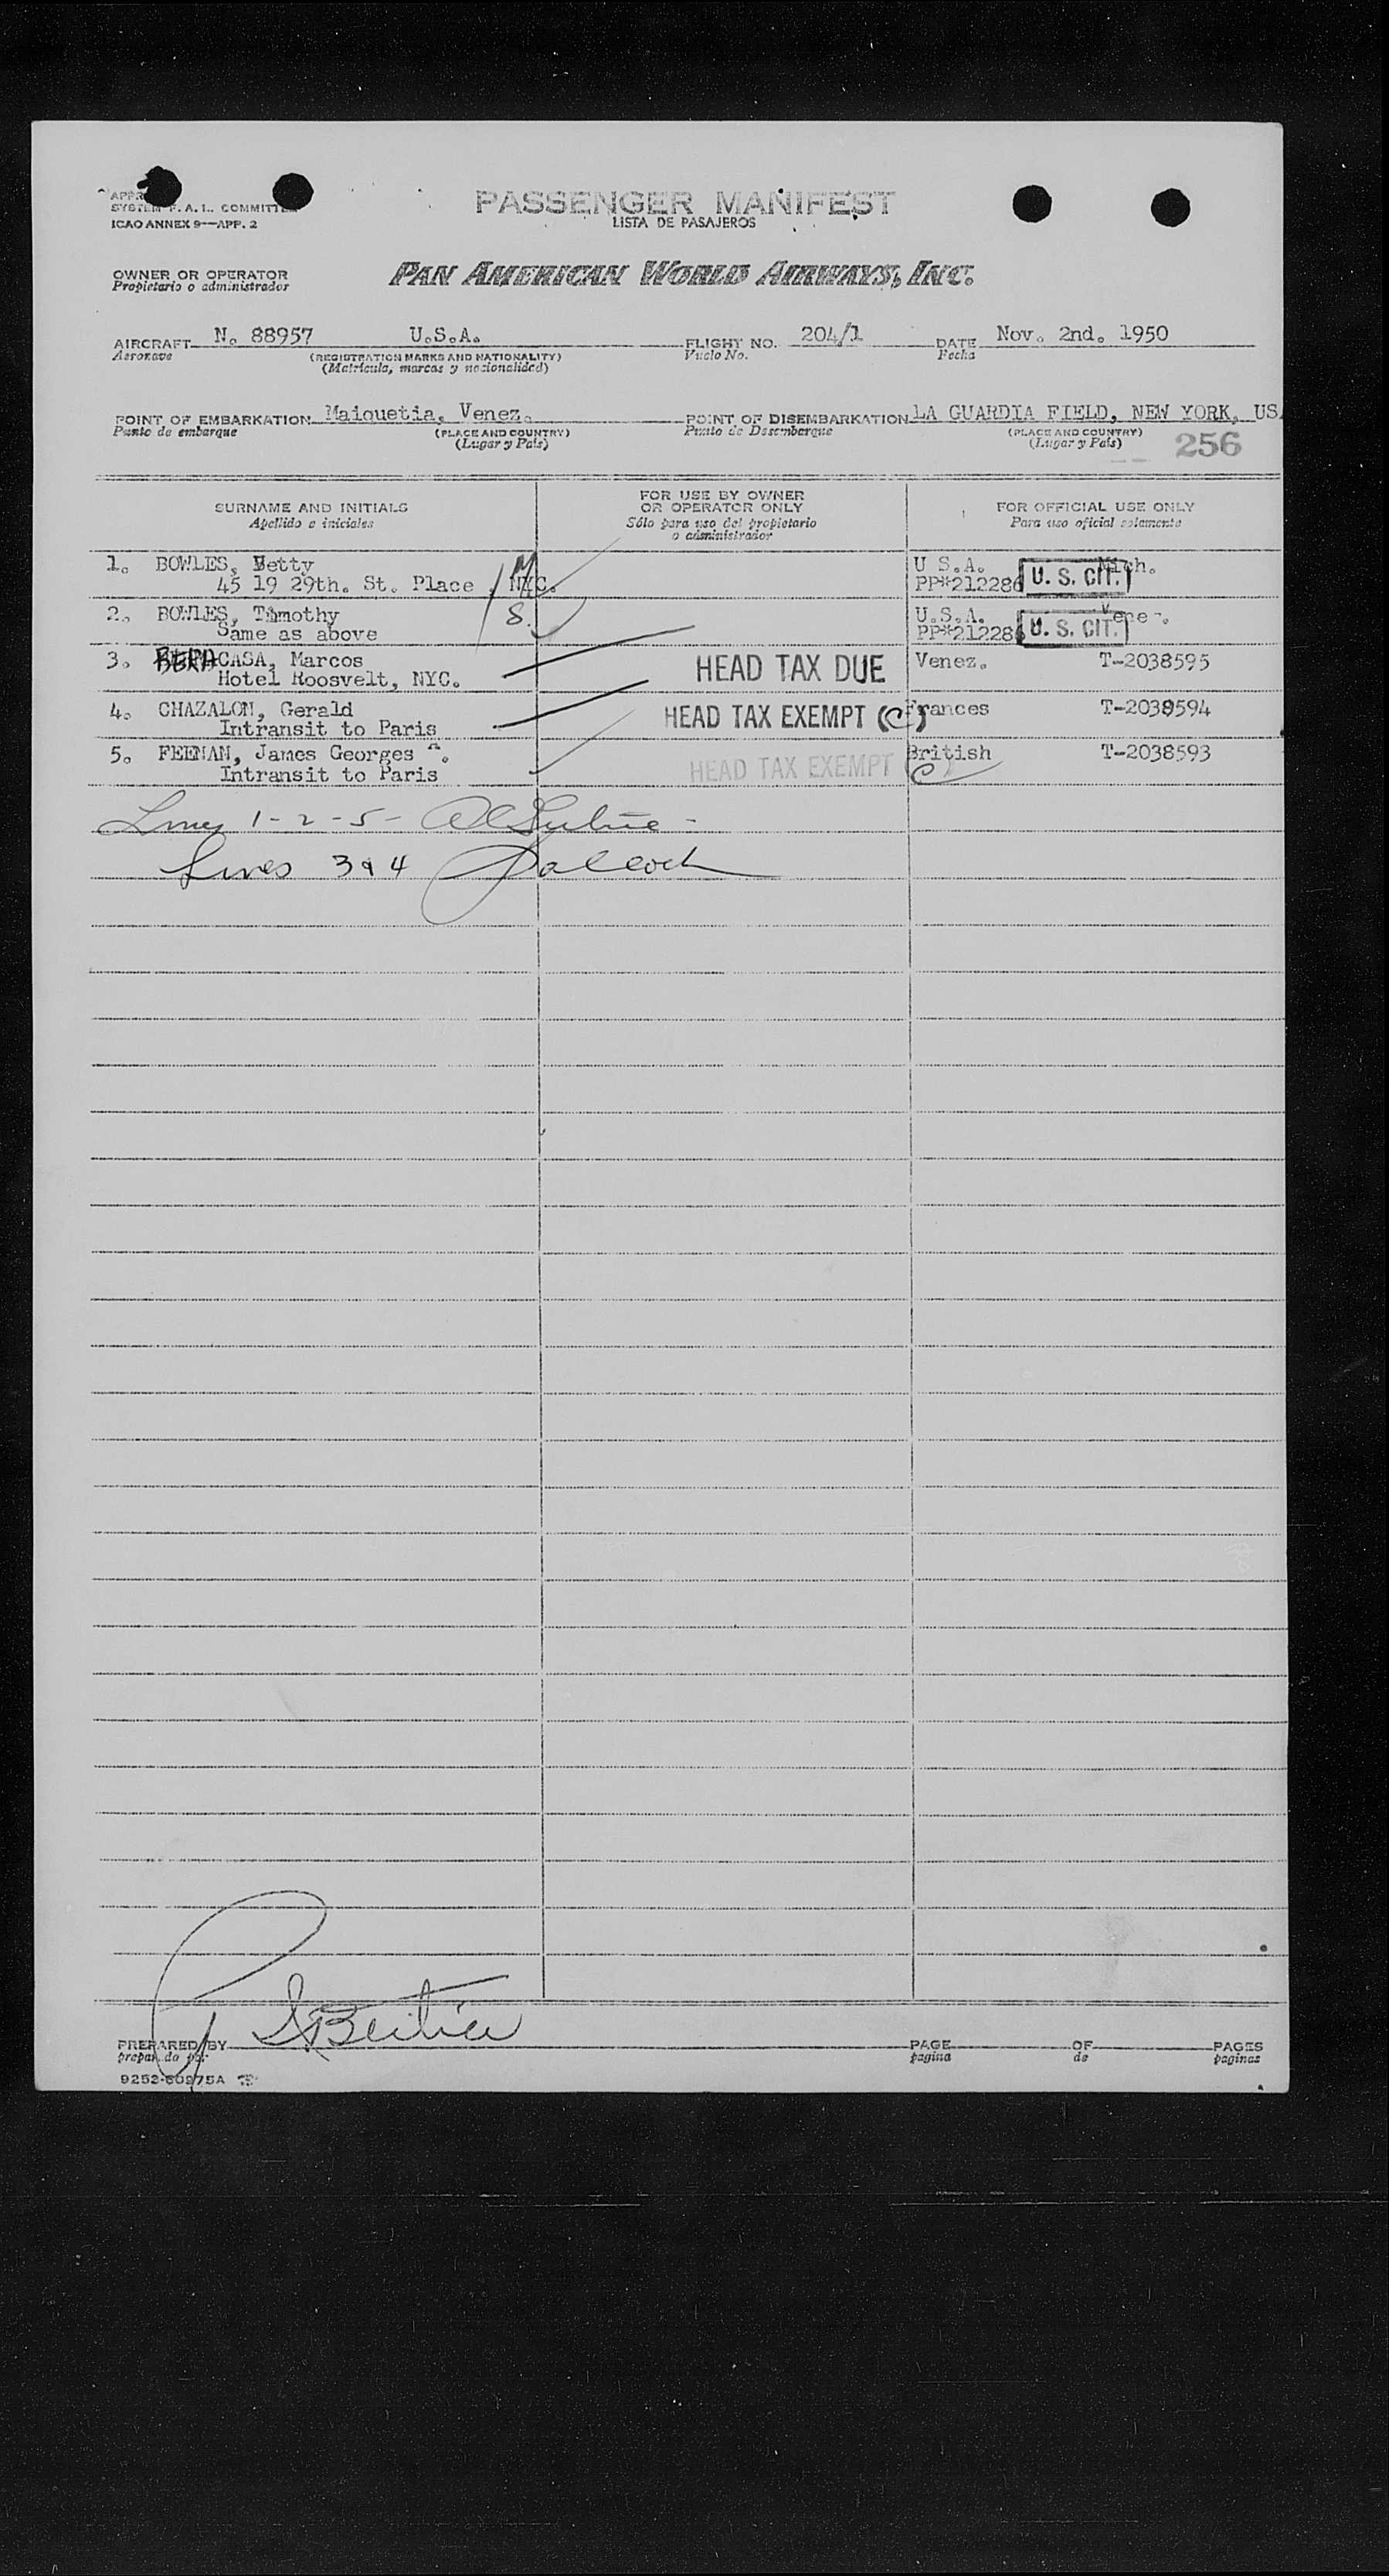 SYSTEM F. A. L. COMMITTEE
ICAO ANNEX 9—APP. 2
PASSENGER MANIFEST
LISTA DE PASAJEROS
OWNER OR OPERATOR
Propietario o administrador
PAN AMERICAN WORLD AIRWAYS, INC.
AIRCRAFT N. 88957 U.S.A. FLIGHT NO. 204/1 DATE Nov. 2nd. 1950
Aeronave (REGISTRATION MARKS AND NATIONALITY) Vuelo No. Fecha
(Matricula, marcas y nacionalidad)
POINT OF EMBARKATION Maiquetia, Venez. POINT OF DISEMBARKATION LA GUARDIA FIELD, NEW YORK, US
Punto de embarque (PLACE AND COUNTRY) Punto de Desembarque (PLACE AND COUNTRY)
(Lugar y País) (Lugar y País) 256
SURNAME AND INITIALS FOR USE BY OWNER OR OPERATOR ONLY FOR OFFICIAL USE ONLY
Apellido e iniciales Sólo para uso del propietario o administrador Para uso oficial solamente
1. BOWLES, Betty M U S.A. Mich.
45 19 29th. St. Place , NYC. PP#212286 U. S. CIT.
2. BOWLES, Timothy S. U.S.A. Vene .
Same as above PP#212286 U. S. CIT.
3. BERACASA, Marcos HEAD TAX DUE Venez. T-2038595
Hotel Roosvelt, NYC.
4. CHAZALON, Gerald HEAD TAX EXEMPT (C) Frances T-2038594
Intransit to Paris
5. FEENAN, James Georges British T-2038593
Intransit to Paris HEAD TAX EXEMPT (C)
Lines 1-2-5-
Lines 3 & 4
PREPARED BY PAGE OF PAGES
preparado por pagina de paginas
9252-60975A